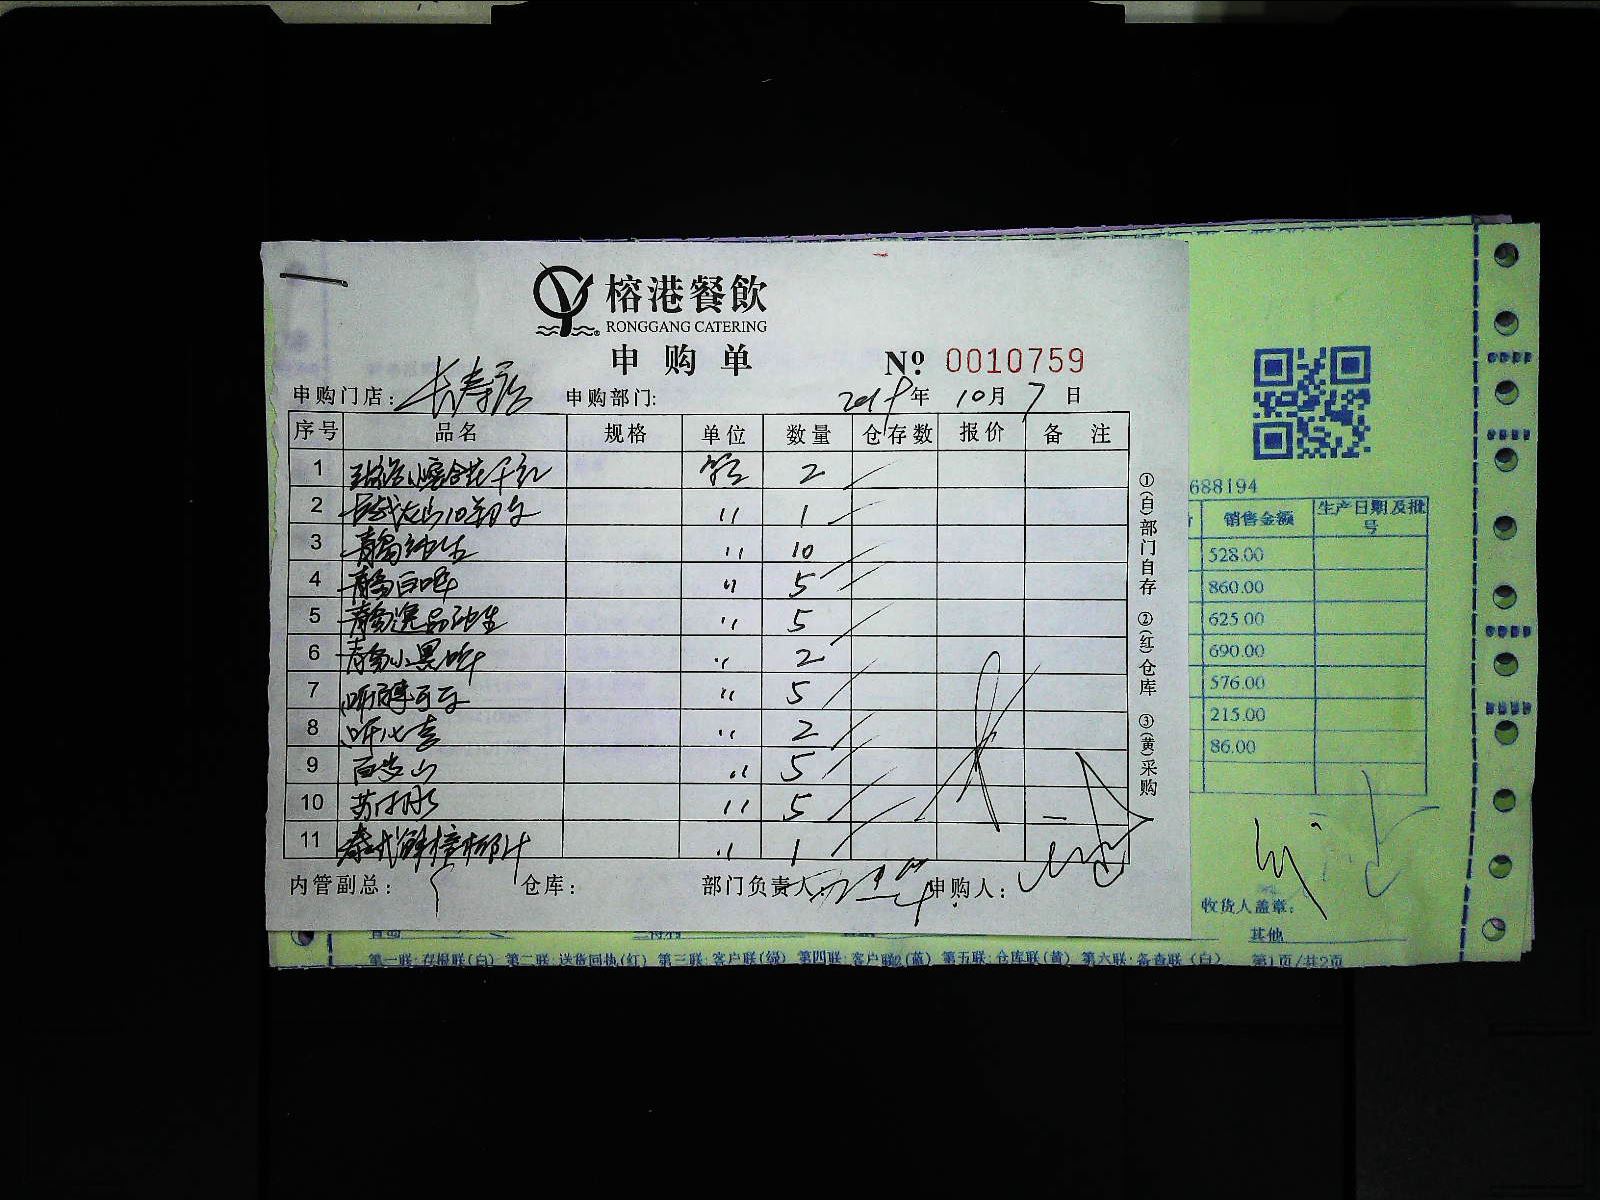 榕港餐飲
RONGGANG CATERING
申购单
№ 0010759
申购门店: 长寿店 申购部门: 2019年 10月 7日
序号 品名 规格 单位 数量 仓存数 报价 备 注
1 2
2 〃 1
3 青岛纯生 〃 10
4 青岛白啤 〃 5
5 青岛逸品纯生 〃 5
6 青岛小黑啤 〃 2
7 〃 5
8 听七喜 〃 2
9 百岁山 〃 5
10 苏打水 〃 5
11 〃 1
内管副总: 仓库: 部门负责人: 申购人:
①(自)部门自存 ②(红)仓库 ③(黄)采购
688194
销售金额 生产日期及批号
528.00
860.00
625.00
690.00
576.00
215.00
86.00
收货人盖章:
其他
第一联:存根联(白) 第二联:送货回执(红) 第三联:客户联(绿) 第四联:客户联2(蓝) 第五联:仓库联(黄) 第六联:备查联(白) 第1页/共2页